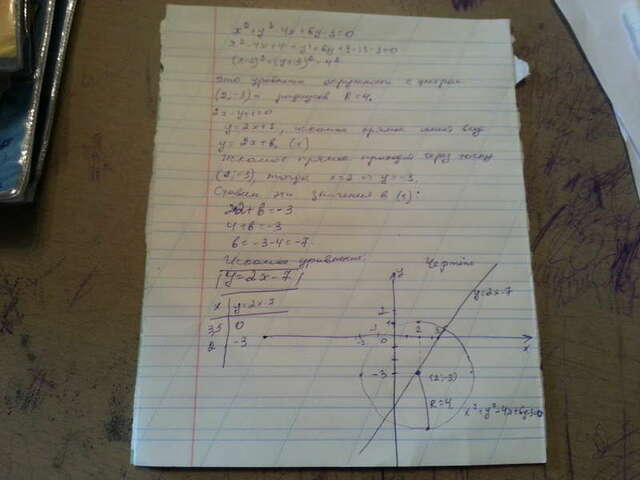 x² + y² - 4x + 6y - 3 = 0
x² - 4x + 4 + y² + 6y + 9 - 13 - 3 = 0
(x-2)² + (y+3)² = 4²
Это уравнение окружности с центром
(2;-3) и радиусом R=4.
2x - y + 1 = 0
y = 2x + 1, искомая прямая имеет вид
y = 2x + b, (1)
Искомая прямая проходит через точку
(2;-3) тогда x=2 и y=-3,
Ставим эти значения в (1):
2·2 + b = -3
4 + b = -3
b = -3 - 4 = -7.
Искомое уравнение:
y = 2x - 7
x | y = 2x - 7
3,5 | 0
2 | -3
Чертёж
y
y = 2x - 7
2
1
-3
-1
0
2
x
-3
(2;-3)
R = 4
x² + y² - 4x + 6y - 3 = 0